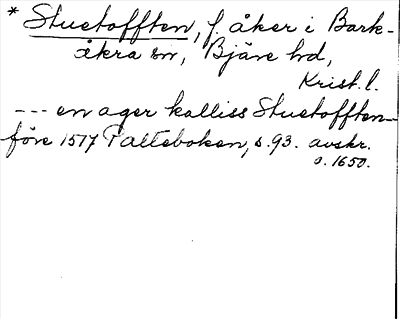 * Stuetofften, f. åker i Bark-
åkra sn, Bjäre hd,
Krist. l.
--- en ager kalliss Stuetofften---
före 1577 Palteboken, s. 93. avskr.
o. 1650.